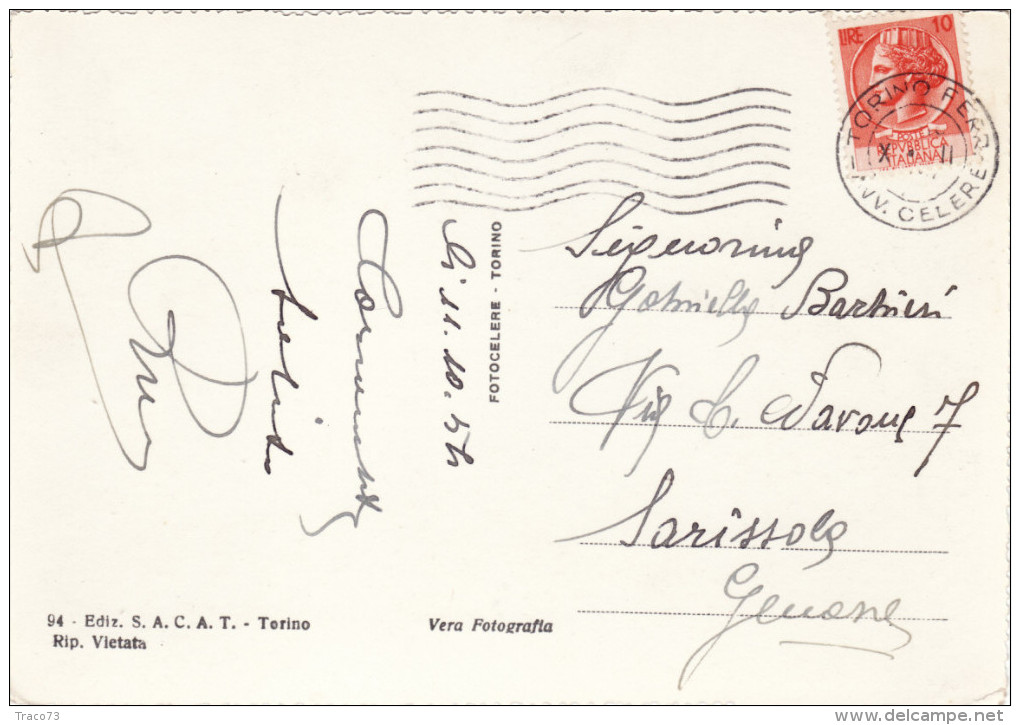 LIRE 10
POSTE
REPVBBLICA
ITALIANA
TORINO FERR.
AVV. CELERE
FOTOCELERE - TORINO
li 11.10.54
Signorina
Gabriella Barbieri
Via C. Savona 7
Sarissola
Genova
94 - Ediz. S. A. C. A. T. - Torino
Rip. Vietata
Vera Fotografia
Traco73
www.delcampe.net